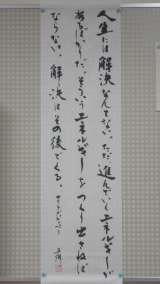 人生には解決なんてない。ただ進んでいくエネルギーが
あるばかりだ。そういうエネルギーをつくり出さねば
ならない。解決はその後でくる。
サン＝テグジュペリ